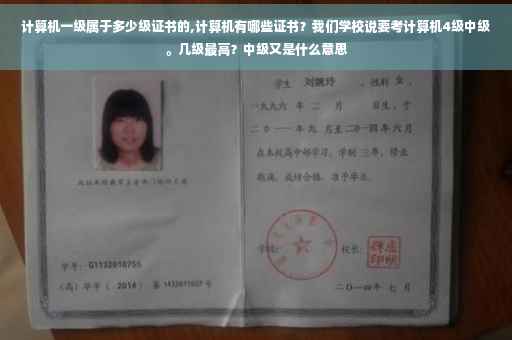 计算机一级属于多少级证书的,计算机有哪些证书？我们学校说要考计算机4级中级
。几级最高？中级又是什么意思
学生 刘婉玲 ，性别 女 ，
一九九六 年 二 月 日生，于
二〇一一年九 月至二〇一四年 六 月
在本校高中部学习，学制 三年，修业
期满，成绩合格，准予毕业。
学校： 校长：
学号： G1132010755
（高）毕字（ 2014 ）第 1432011027 号
二〇一四年 七 月